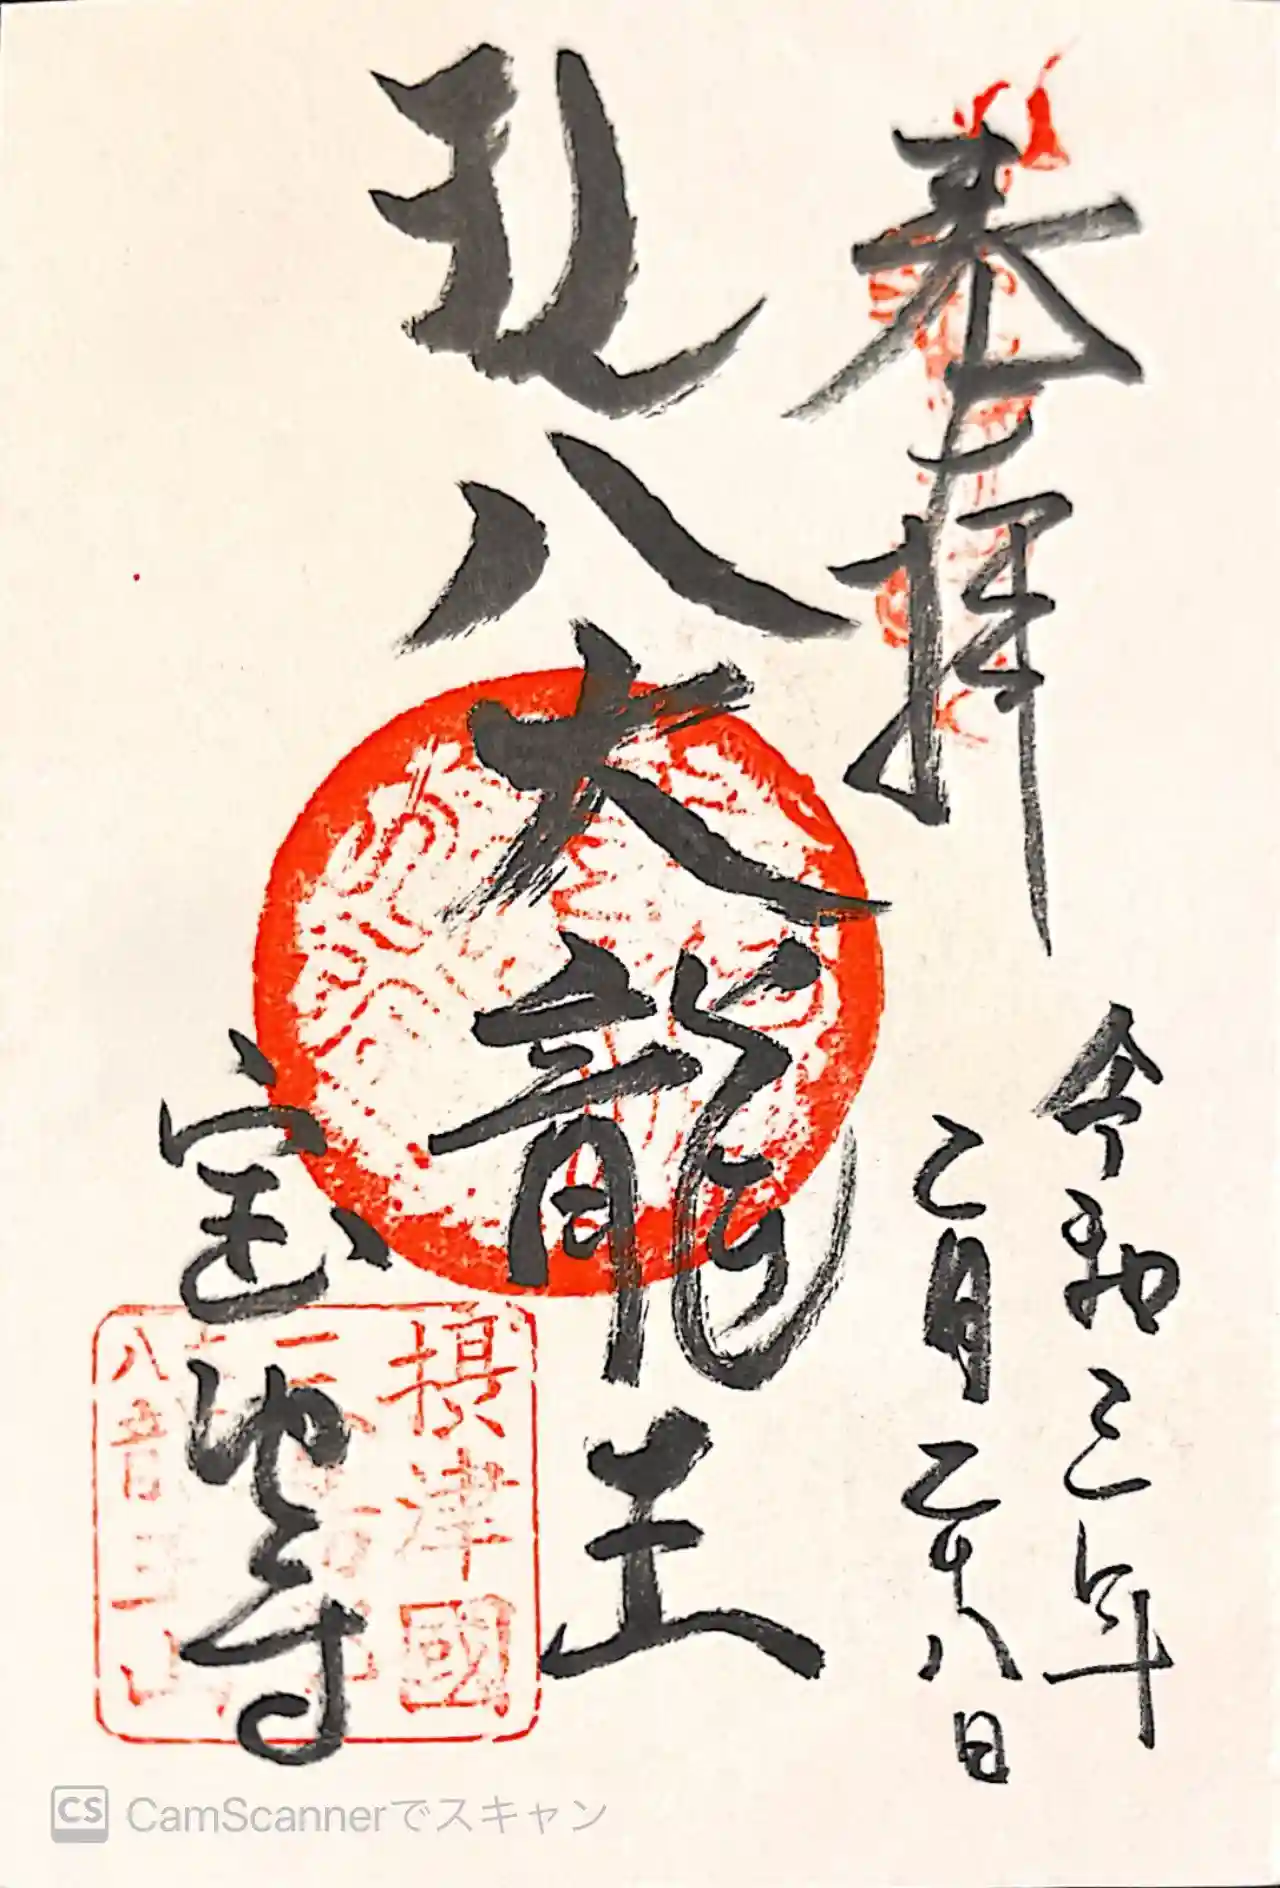 奉拝
令和三年
二月二十八日
八大龍王
宝池寺
摂津國
CamScannerでスキャン